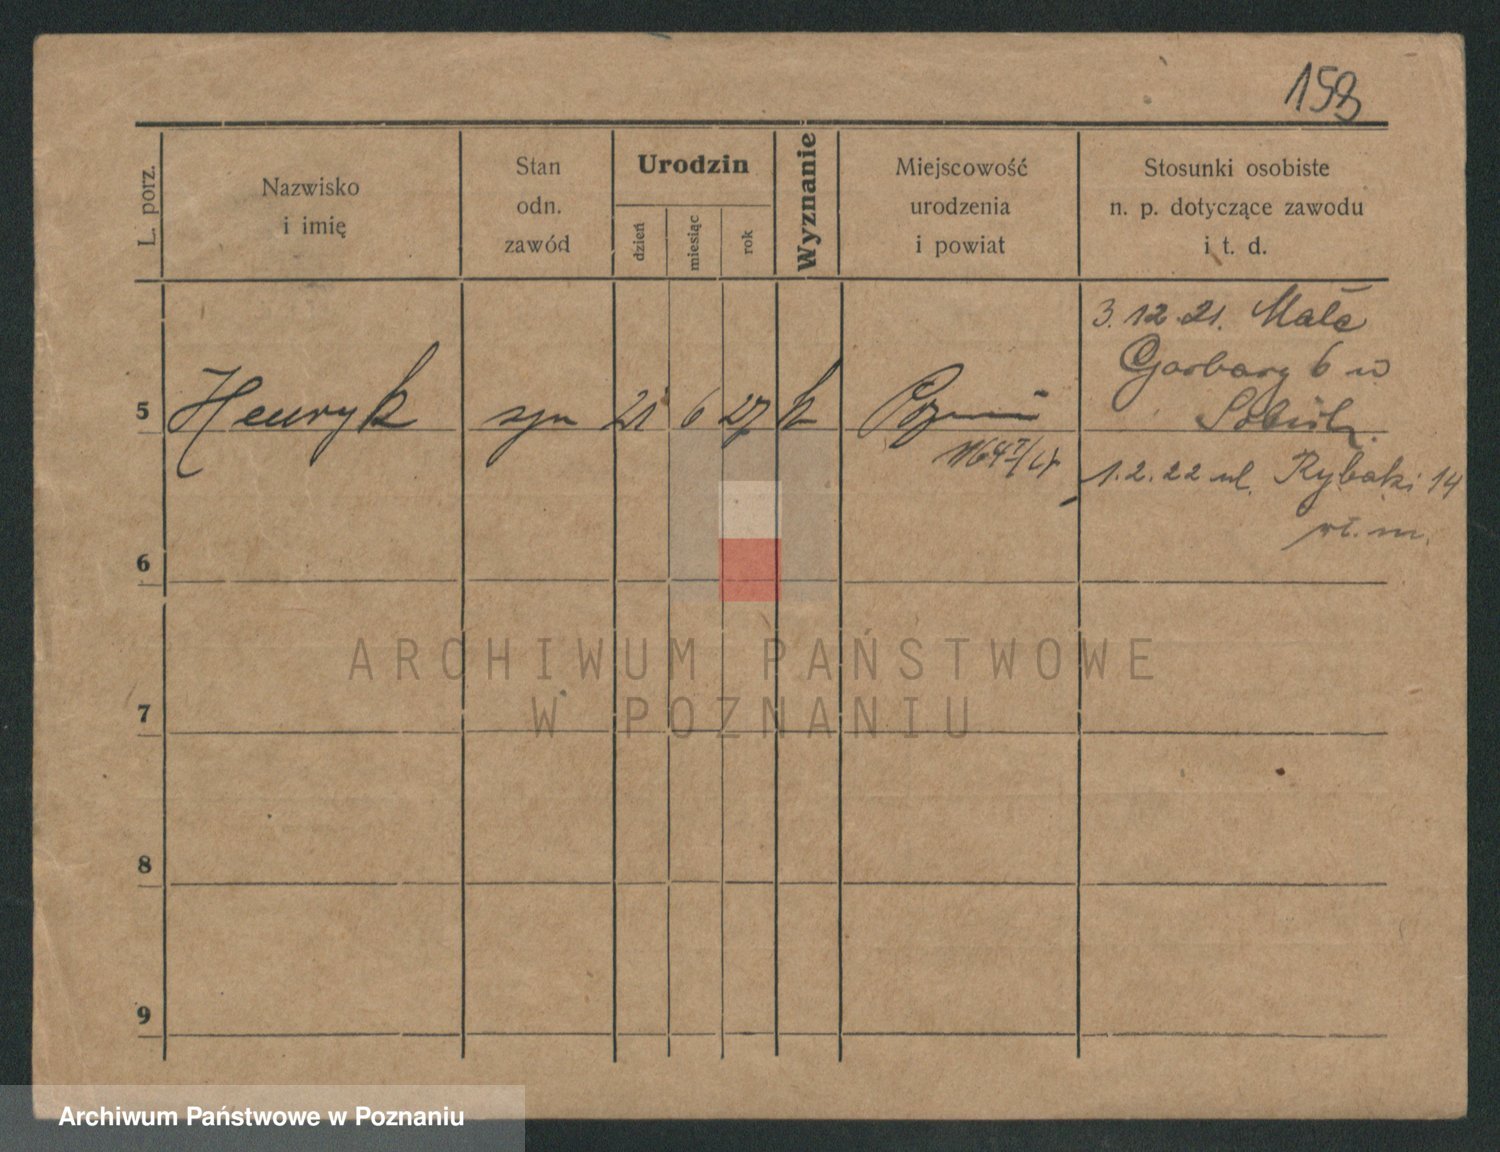 158
L. porz.
Nazwisko
i imię
Stan
odn.
zawód
Urodzin
dzień
miesiąc
rok
Wyznanie
Miejscowość
urodzenia
i powiat
Stosunki osobiste
n. p. dotyczące zawodu
i t. d.
3. 12. 21. Małe
Garbary 6 u
5 Henryk syn 21 6 27 k Poznań
1. 2. 22 ul. Rybaki 14
6
ARCHIWUM PAŃSTWOWE
W POZNANIU
7
8
9
Archiwum Państwowe w Poznaniu